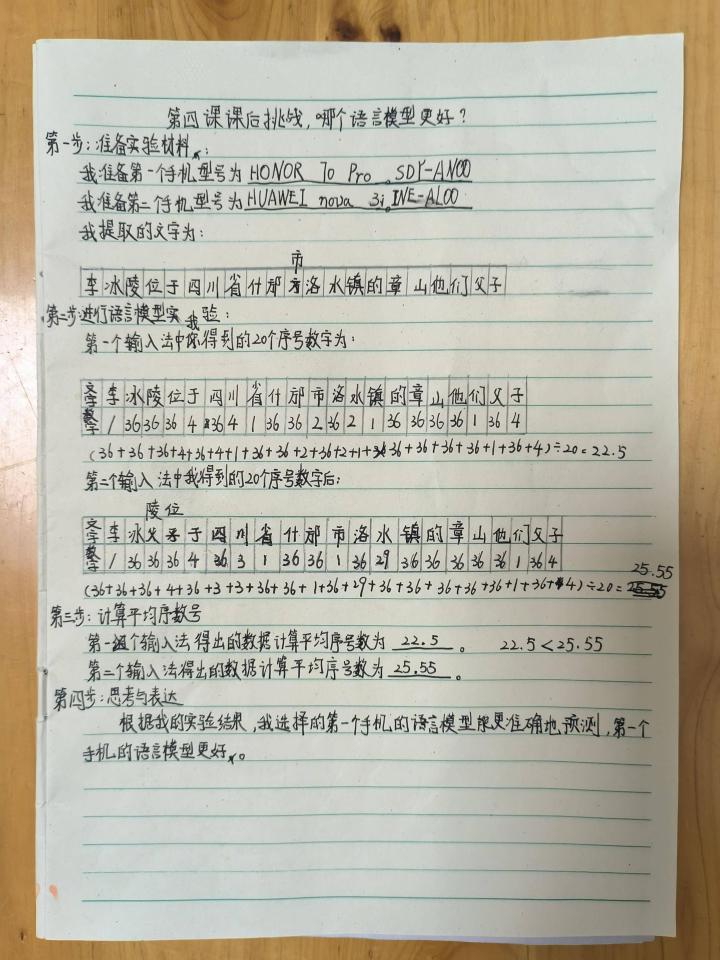 第四课课后挑战,哪个语言模型更好?
第一步:准备实验材料:
我准备第一个手机型号为 HONOR 70 Pro SDY-AN00
我准备第二个手机型号为 HUAWEI nova 3i INE-AL00
我提取的文字为:
市
李冰陵位于四川省什邡市洛水镇的章山他们父子
第二步进行语言模型实验:
我
第一个输入法中你得到的20个序号数字为:
文字 李 冰 陵 位 于 四 川 省 什 邡 市 洛 水 镇 的 章 山 他 们 父 子
数字 1 36 36 36 4 36 4 1 36 36 2 36 2 1 36 36 36 36 1 36 4
(36+36+36+4+36+4+1+36+36+2+36+2+1+36+36+36+36+1+36+4)÷20=22.5
第二个输入法中我得到的20个序号数字后:
陵位
文字 李 冰 父 子 于 四 川 省 什 邡 市 洛 水 镇 的 章 山 他 们 父 子
数字 1 36 36 36 4 36 3 1 36 36 1 36 29 36 36 36 36 36 1 36 4
25.55
(36+36+36+4+36+3+3+36+36+1+36+29+36+36+36+36+36+1+36+4)÷20=
第三步:计算平均序数号
第一个输入法得出的数据计算平均序号数为 22.5 。 22.5<25.55
第二个输入法得出的数据计算平均序号数为 25.55 。
第四步:思考与表达
根据我的实验结果,我选择的第一个手机的语言模型能更准确地预测,第一个
手机的语言模型更好。